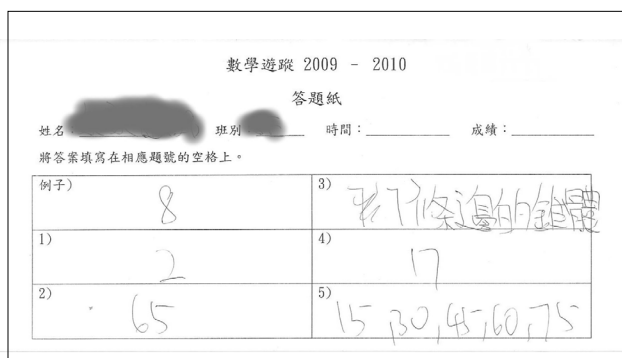 數學遊蹤 2009 - 2010
答題紙
姓名 班別 時間：________ 成績：________
將答案填寫在相應題號的空格上。
例子) 8
3) 有7條邊的錐體
1) 2
4) 17
2) 65
5) 15,30,45,60,75